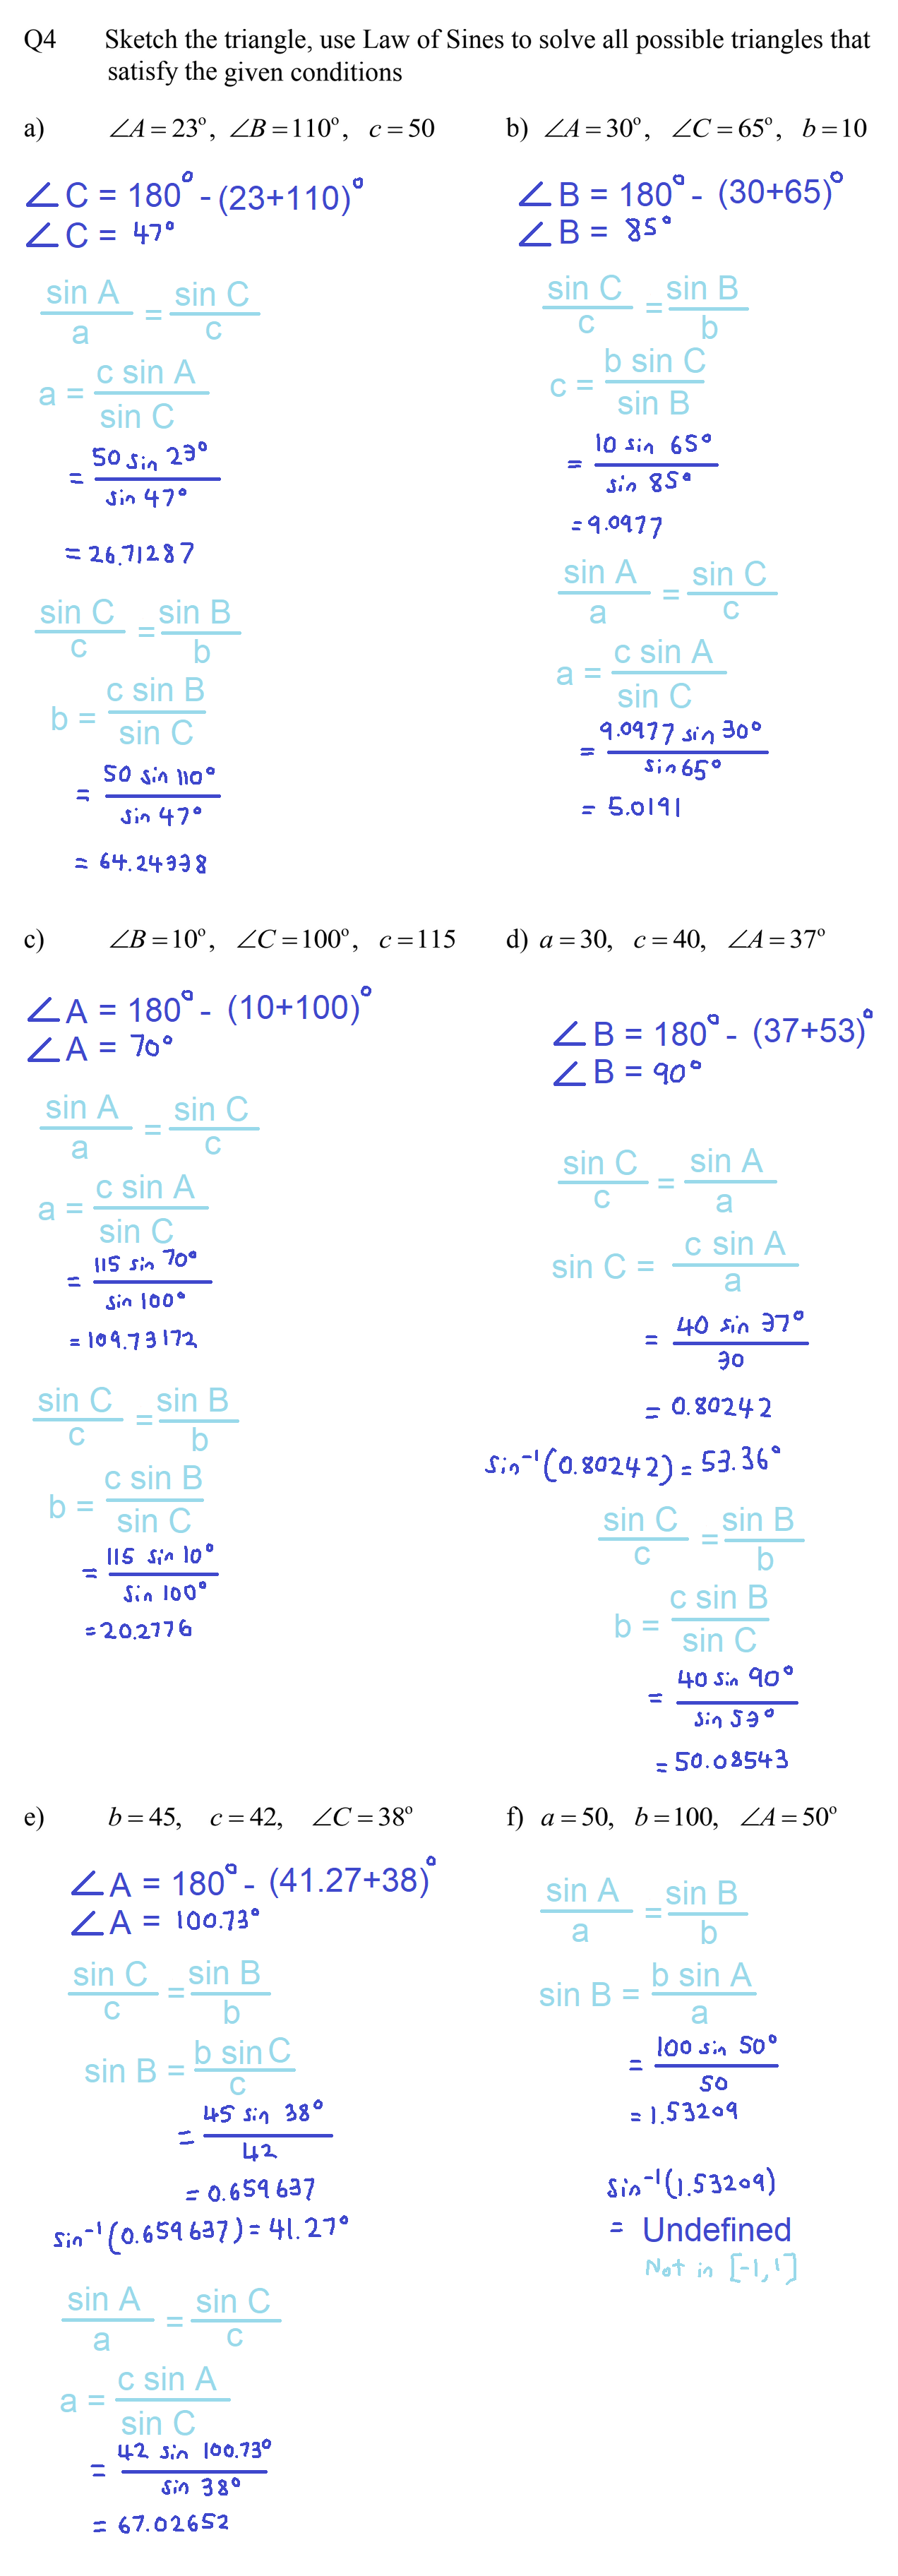 Q4 Sketch the triangle, use Law of Sines to solve all possible triangles that
satisfy the given conditions
a) ∠A = 23°, ∠B = 110°, c = 50
∠C = 180° - (23+110)°
∠C = 47°
sin A / a = sin C / c
a = c sin A / sin C
= 50 sin 23° / sin 47°
= 26.71287
sin C / c = sin B / b
b = c sin B / sin C
= 50 sin 110° / sin 47°
= 64.24338
b) ∠A = 30°, ∠C = 65°, b = 10
∠B = 180° - (30+65)°
∠B = 85°
sin C / c = sin B / b
c = b sin C / sin B
= 10 sin 65° / sin 85°
= 9.0977
sin A / a = sin C / c
a = c sin A / sin C
= 9.0977 sin 30° / sin 65°
= 5.0191
c) ∠B = 10°, ∠C = 100°, c = 115
∠A = 180° - (10+100)°
∠A = 70°
sin A / a = sin C / c
a = c sin A / sin C
= 115 sin 70° / sin 100°
= 109.73172
sin C / c = sin B / b
b = c sin B / sin C
= 115 sin 10° / sin 100°
= 20.2776
d) a = 30, c = 40, ∠A = 37°
∠B = 180° - (37+53)°
∠B = 90°
sin C / c = sin A / a
sin C = c sin A / a
= 40 sin 37° / 30
= 0.80242
sin⁻¹(0.80242) = 53.36°
sin C / c = sin B / b
b = c sin B / sin C
= 40 sin 90° / sin 53°
= 50.08543
e) b = 45, c = 42, ∠C = 38°
∠A = 180° - (41.27+38)°
∠A = 100.73°
sin C / c = sin B / b
sin B = b sin C / c
= 45 sin 38° / 42
= 0.659637
sin⁻¹(0.659637) = 41.27°
sin A / a = sin C / c
a = c sin A / sin C
= 42 sin 100.73° / sin 38°
= 67.02652
f) a = 50, b = 100, ∠A = 50°
sin A / a = sin B / b
sin B = b sin A / a
= 100 sin 50° / 50
= 1.53209
sin⁻¹(1.53209)
= Undefined
Not in [-1,1]